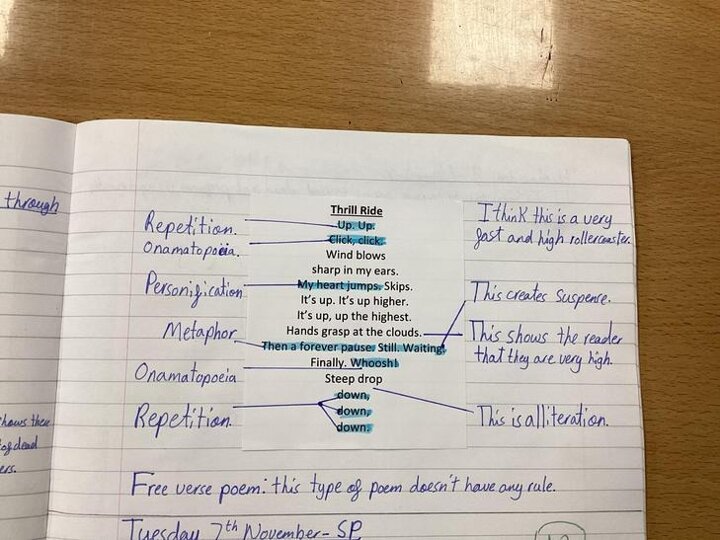 through
Repetition.
Onamatopoeia.
Personification
Metaphor
Onamatopoeia
Repetition.
Thrill Ride
Up. Up.
Click, click.
Wind blows
sharp in my ears.
My heart jumps. Skips.
It's up. It's up higher.
It's up, up the highest.
Hands grasp at the clouds.
Then a forever pause. Still. Waiting.
Finally. Whoosh!
Steep drop
down,
down,
down.
I think this is a very
fast and high rollercoaster.
This creates suspense.
This shows the reader
that they are very high.
This is alliteration.
of dead
ers.
Free verse poem: this type of poem doesn't have any rule.
Tuesday 7th November - SP